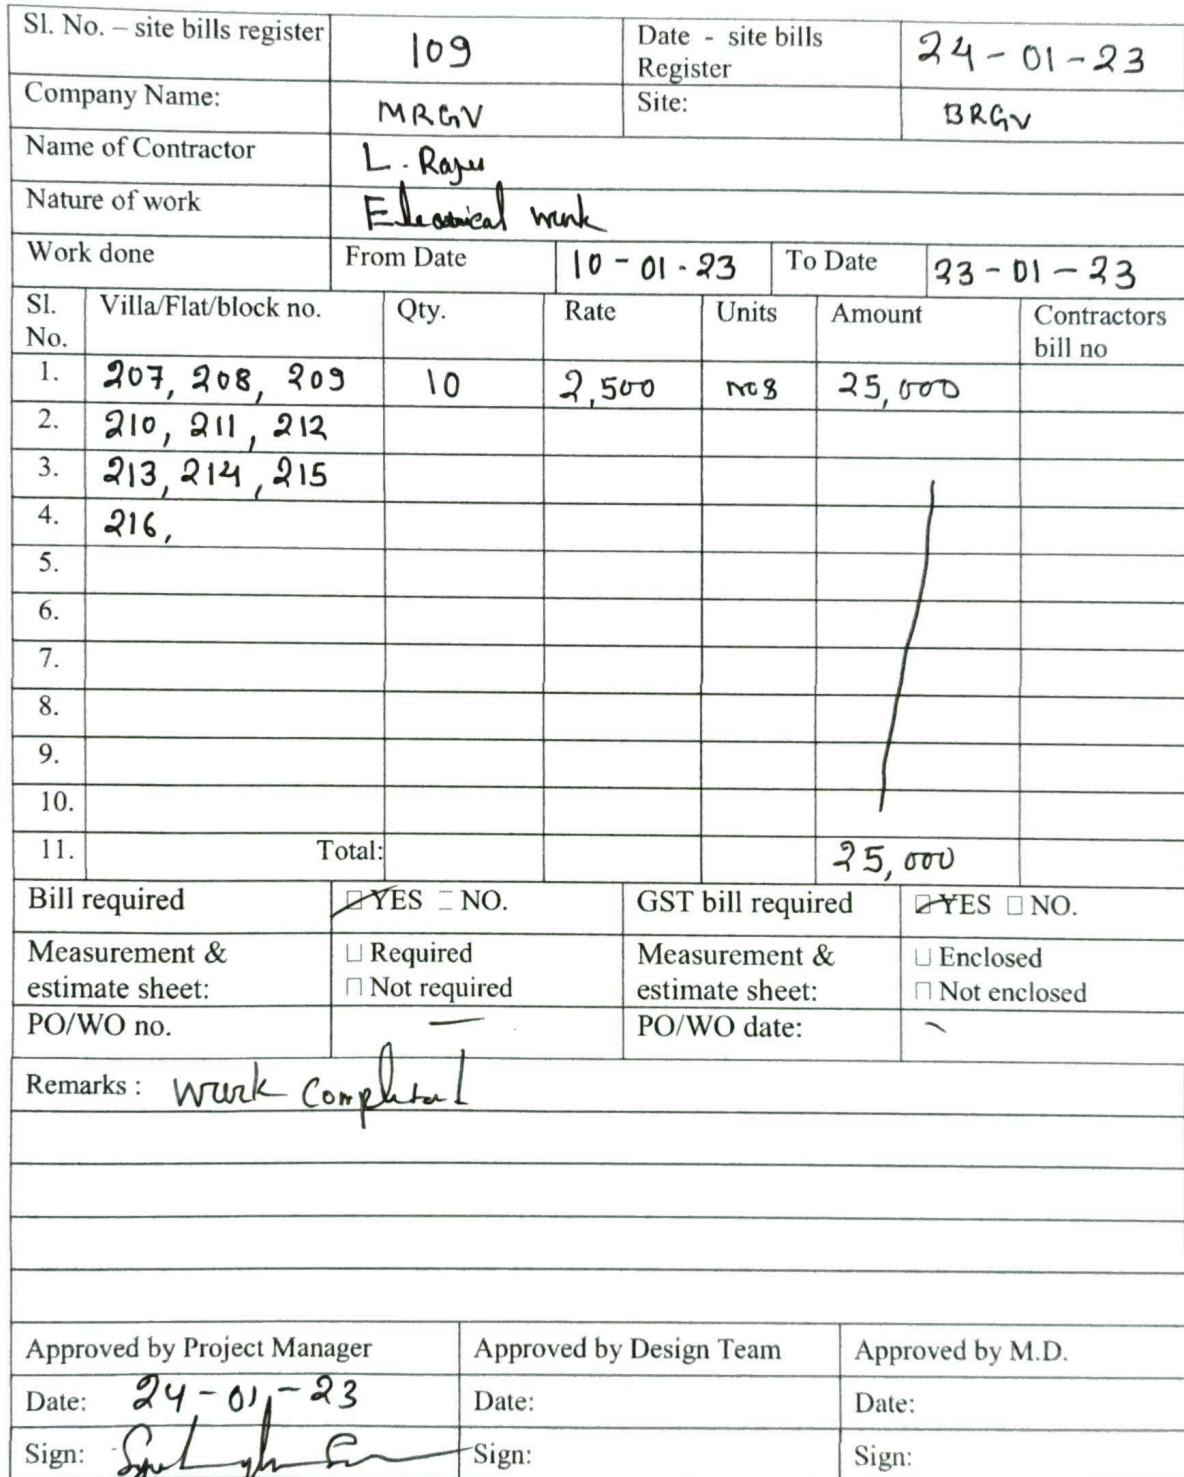 Sl. No. – site bills register 109 Date - site bills Register 24-01-23
Company Name: MRGV Site: BRGV
Name of Contractor L. Raju
Nature of work Electrical work
Work done From Date 10-01-23 To Date 23-01-23
Sl. No. Villa/Flat/block no. Qty. Rate Units Amount Contractors bill no
1. 207, 208, 209 10 2,500 nos 25,000
2. 210, 211, 212
3. 213, 214, 215
4. 216,
5.
6.
7.
8.
9.
10.
11. Total: 25,000
Bill required YES NO. GST bill required YES NO.
Measurement & estimate sheet: Required Not required Measurement & estimate sheet: Enclosed Not enclosed
PO/WO no. — PO/WO date: -
Remarks : Work Completed
Approved by Project Manager Approved by Design Team Approved by M.D.
Date: 24-01-23 Date: Date:
Sign: Sign: Sign: